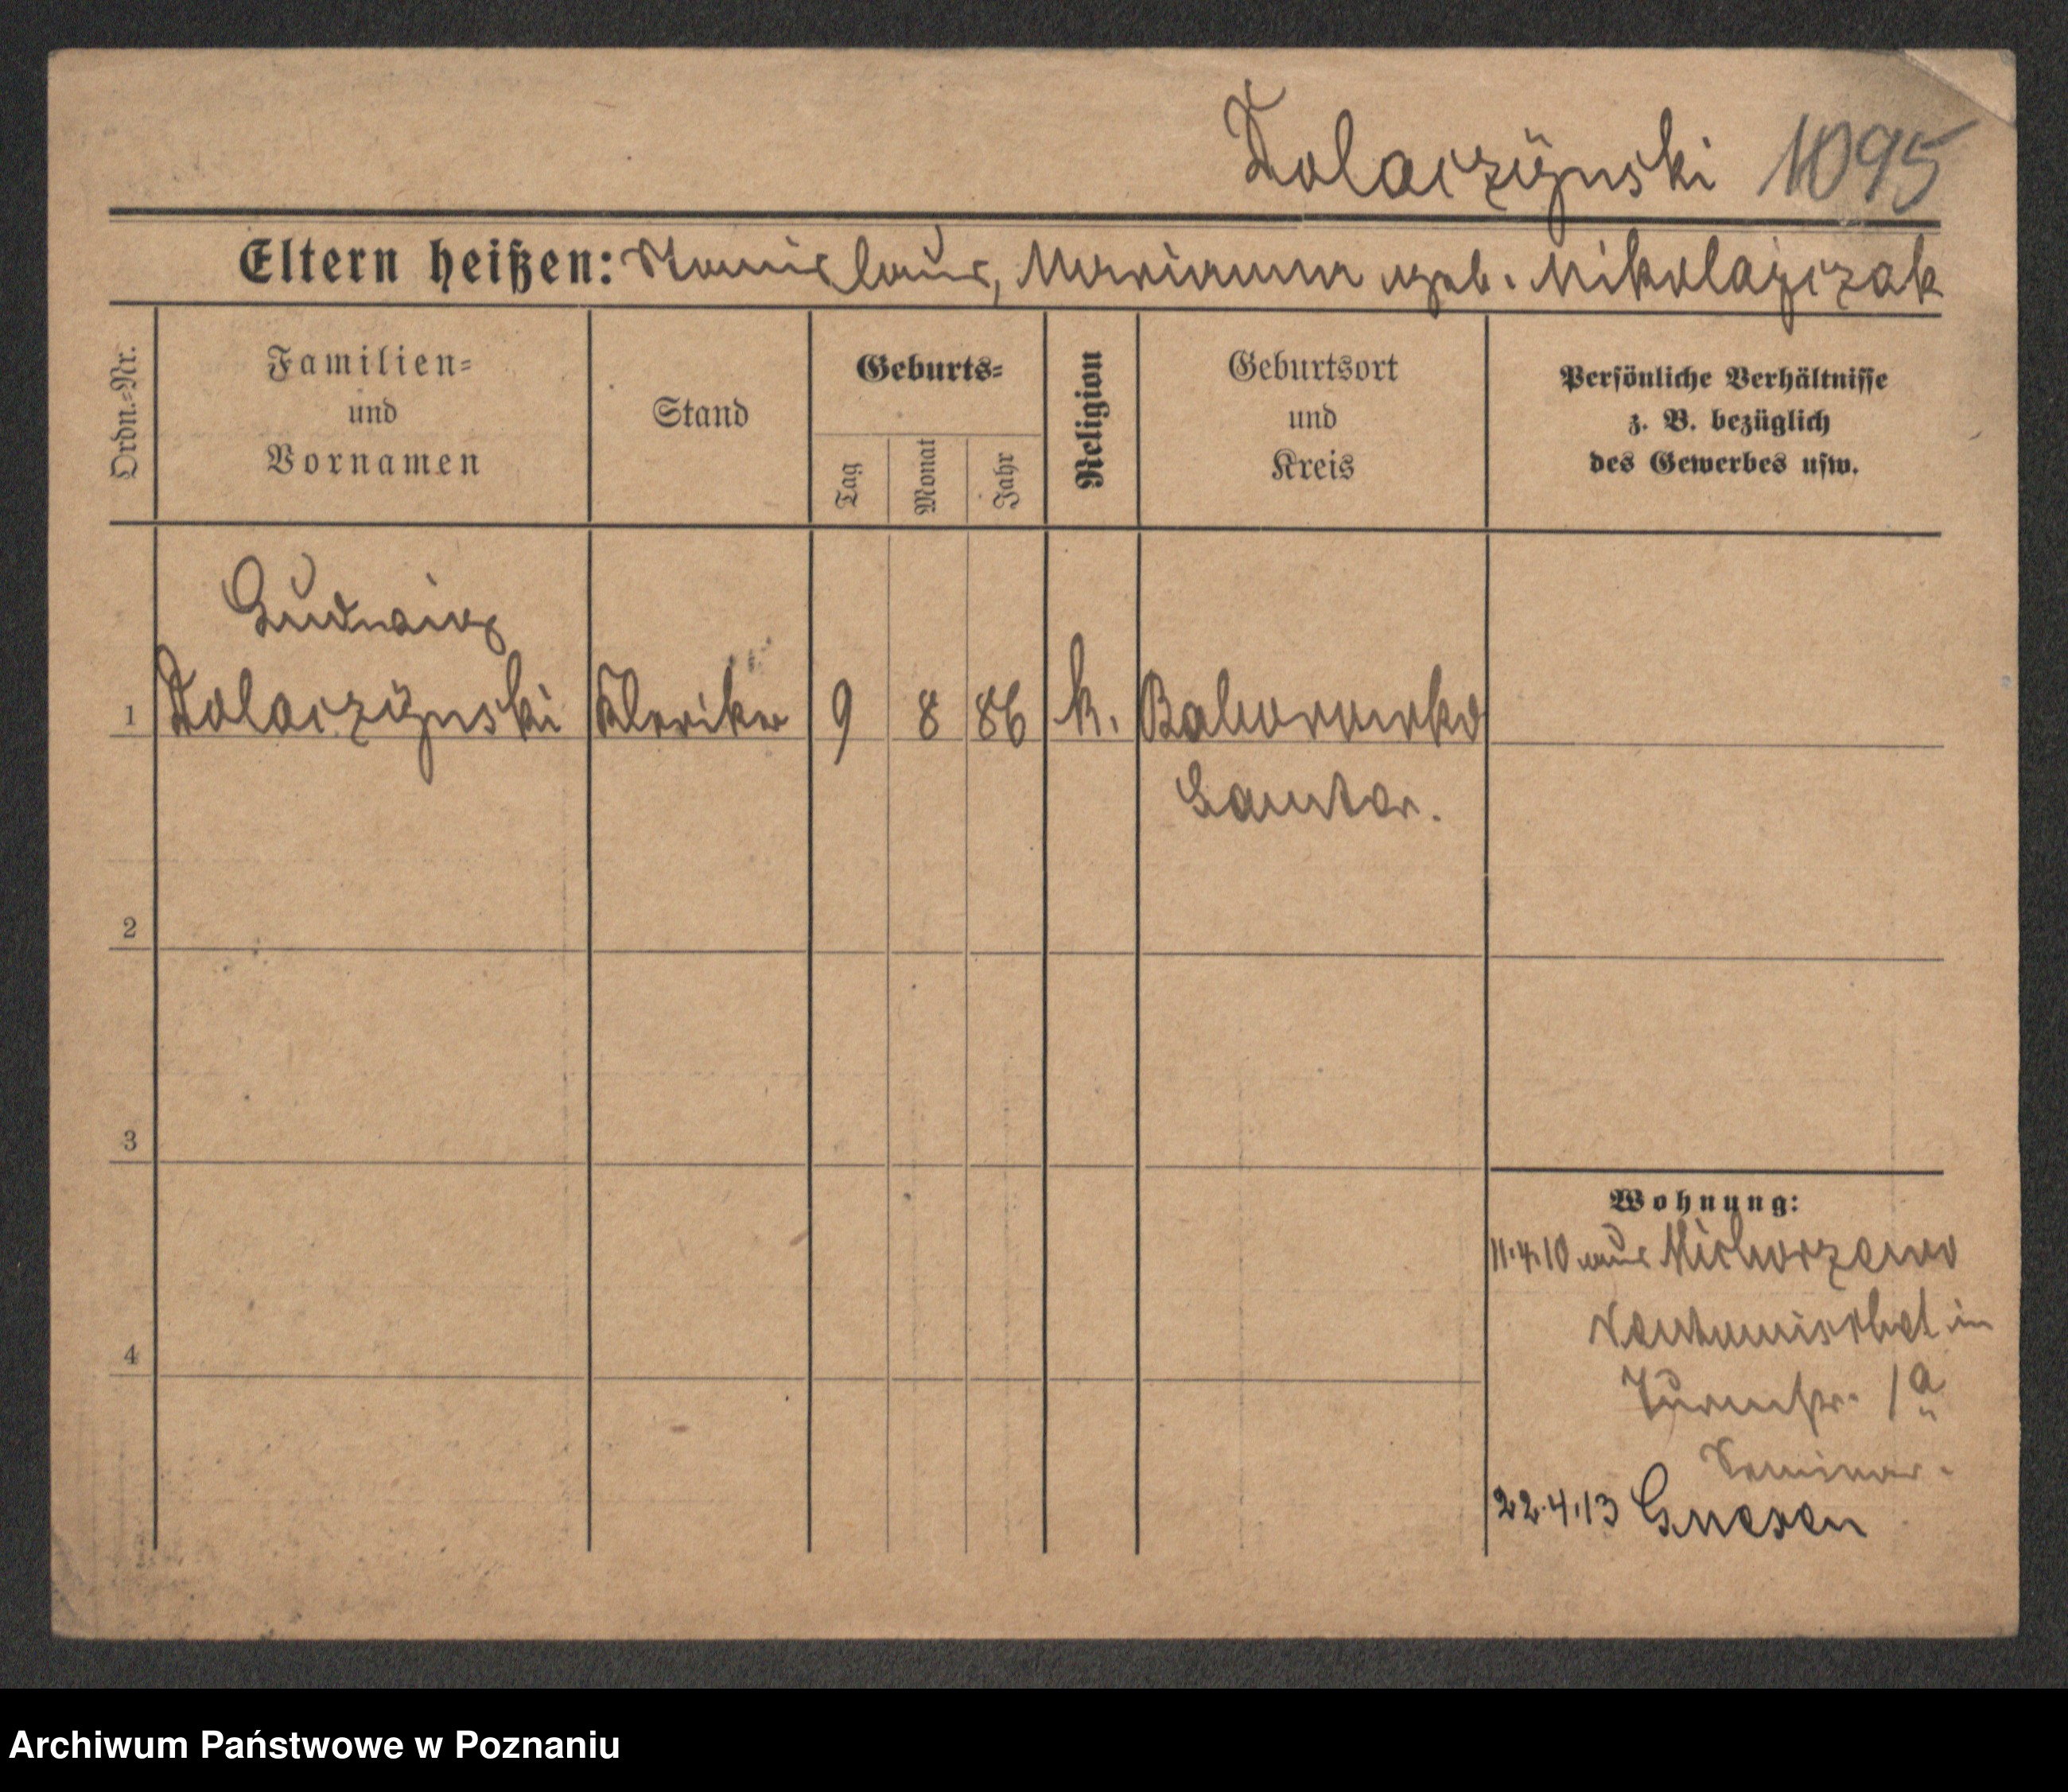 Dolaczÿnski 1095
Eltern heißen: Stanislaus, Marianna geb. Mikolajczak
Ordn.-Nr.
Familien-
und
Vornamen
Stand
Geburts-
Tag
Monat
Jahr
Religion
Geburtsort
und
Kreis
Persönliche Verhältnisse
z. B. bezüglich
des Gewerbes usw.
Ludwig
1 Dolaczÿnski Kleriker 9 8 86 k. Baborowko
Samter.
2
3
4
Wohnung:
11.4.10 aus
in
Turmstr. 1a
Seminar.
22.4.13 Gnesen
Archiwum Państwowe w Poznaniu